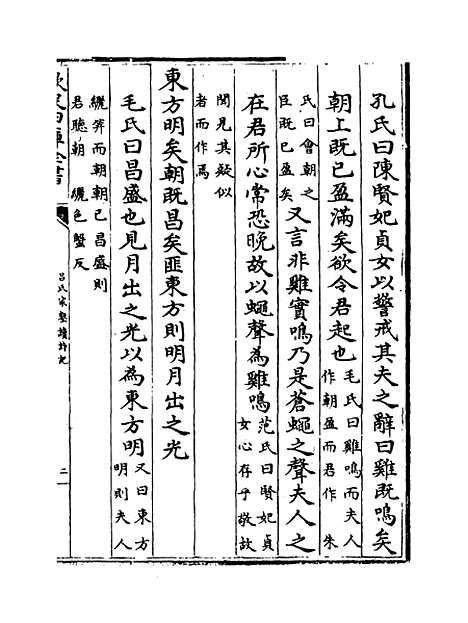 孔氏曰陳賢妃貞女以警戒其夫之辭曰雞既鳴矣
朝上既已盈滿矣欲令君起也毛氏曰雞鳴而夫人作朝盈而君作　朱
氏曰會朝之臣既已盈矣又言非雞實鳴乃是蒼蠅之聲夫人之
在君所心常恐晚故以蠅聲為雞鳴范氏曰賢妃貞女心存乎敬故
聞見其疑似者而作焉
東方明矣朝既昌矣匪東方則明月出之光
毛氏曰昌盛也見月出之光以為東方明又曰東方明則夫人
纚笄而朝朝已昌盛則君聽朝　纚色蟹反
欽定四庫全書
呂氏家塾讀詩記
二